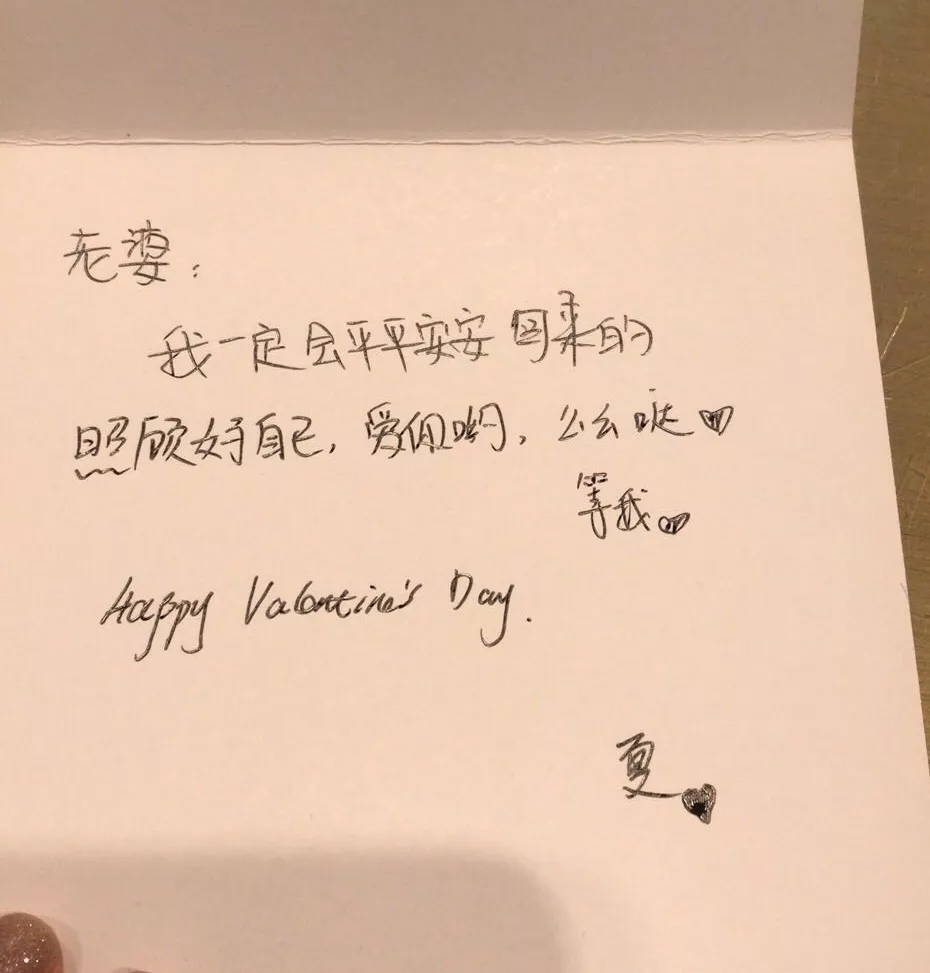 老婆：
我一定会平平安安回来的
照顾好自己，爱你哟，么么哒♥
等我♥
Happy Valentine's Day.
夏♥